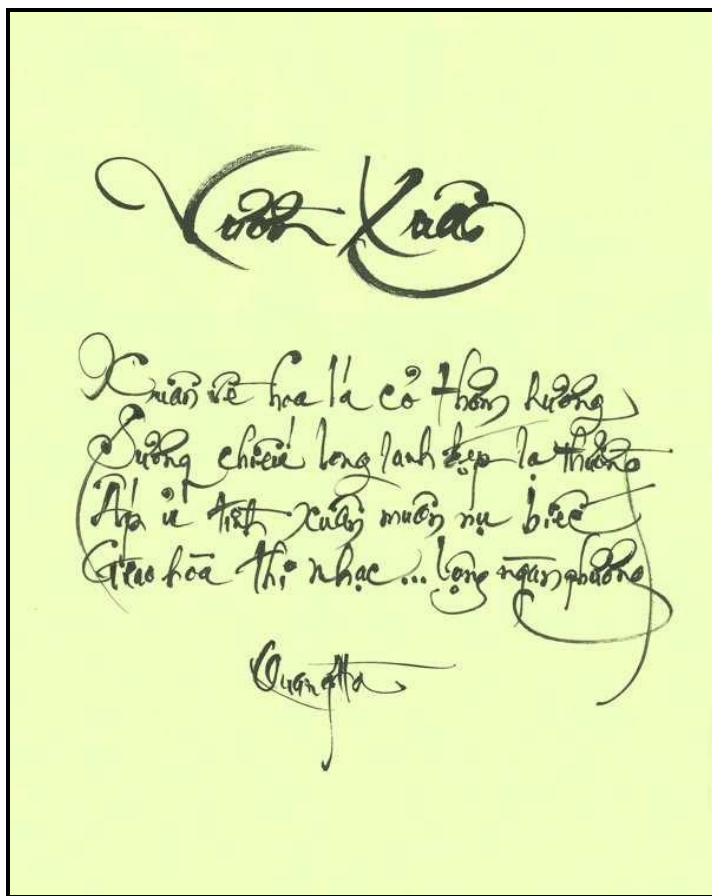 Vườn Xuân
Xuân về hoa lá cỏ thơm hương
Sương chiếu long lanh đẹp lạ thường
Ấp ủ tình xuân muôn nụ biếc
Giao hòa thi nhạc... lộng ngàn phương
Quang Hà